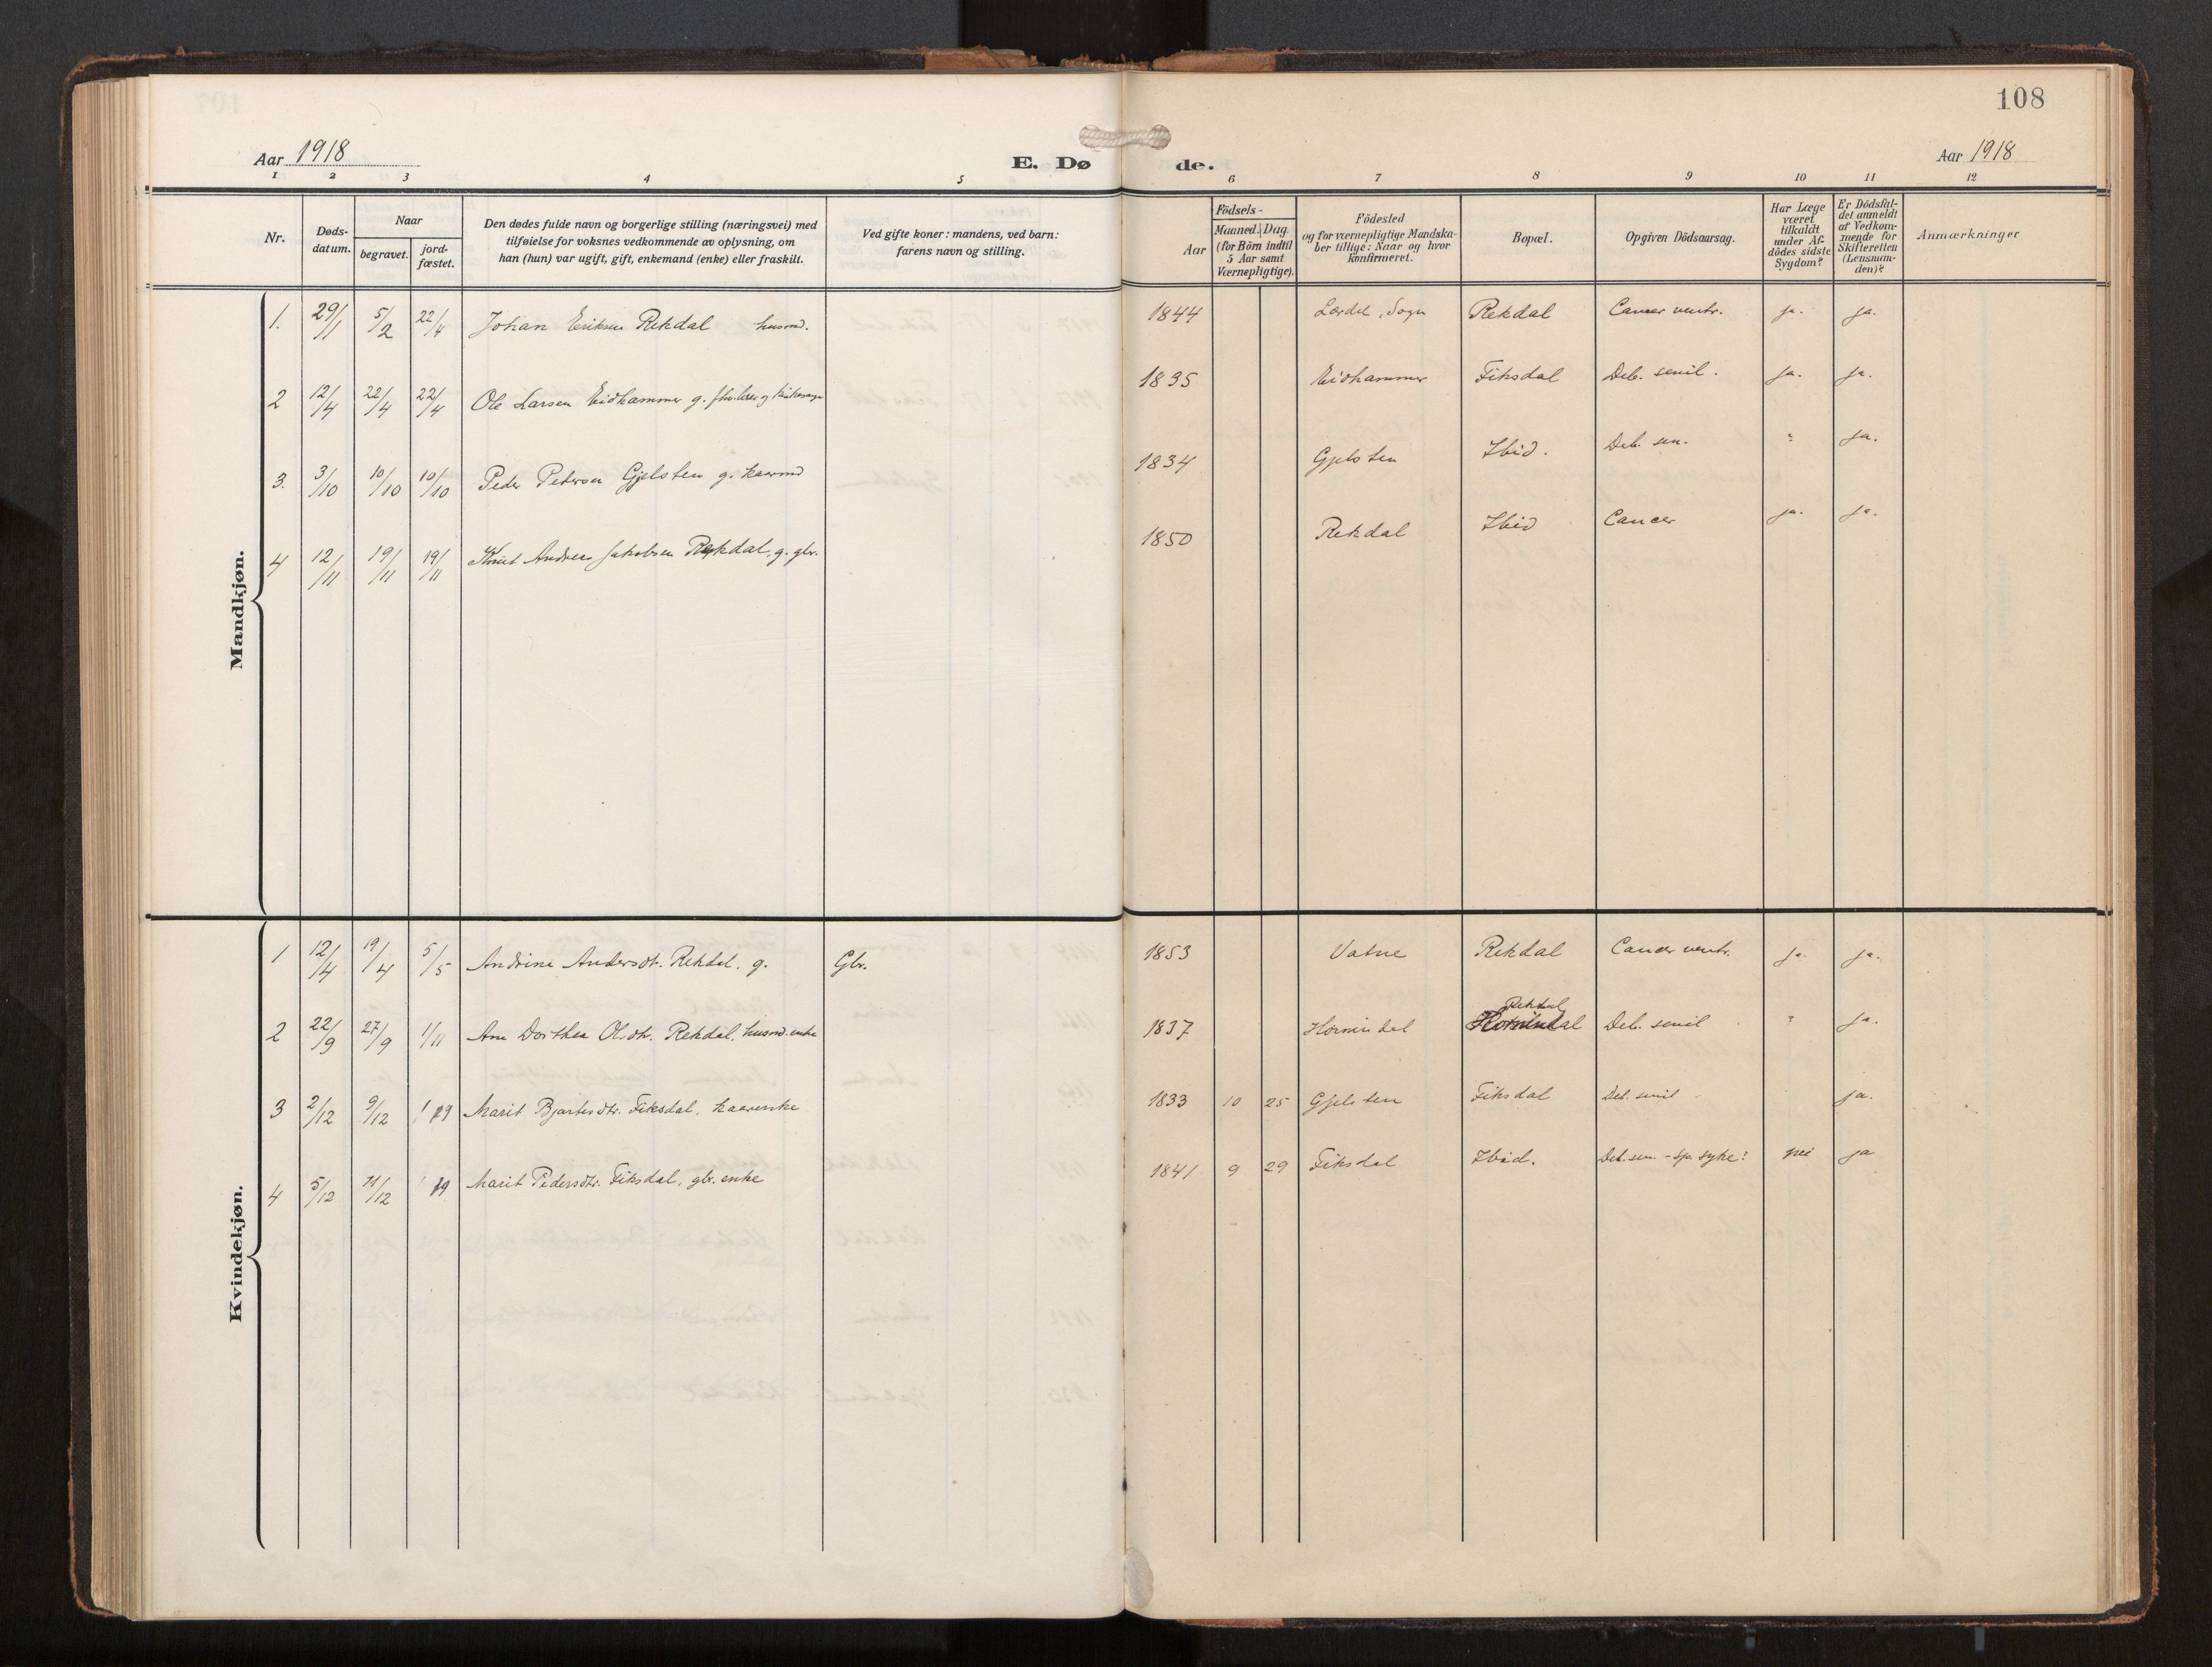 108
Aar 1918
E. Døde.
Aar 1918
1 2 3 4 5 6 7 8 9 10 11 12
Nr.
Døds-datum.
Naar
begravet.
jord-fæstet.
Den dødes fulde navn og borgerlige stilling (næringsvei) med
tilføielse for voksnes vedkommende av oplysning, om
han (hun) var ugift, gift, enkemand (enke) eller fraskilt.
Ved gifte koner: mandens, ved barn:
farens navn og stilling.
Aar
Födsels-
Maaned. Dag.
(for Börn indtil
5 Aar samt
Værnepligtige).
Födested
og for værnepligtige Mandska-
ber tillige: Naar og hvor
konfirmeret.
Bopæl.
Opgiven Dödsaarsag.
Har Læge
været
tilkaldt
under Af-
dödes sidste
Sygdom?
Er Dödsfal-
det anmeldt
af Vedkom-
mende for
Skifteretten
(Lensman-
den)?
Anmærkninger
Mandkjøn.
1. 29/1 5/2 22/4 Johan Eriksen Rekdal husmd. 1844 Lærdal, Sogn Rekdal Cancer ventr. ja. ja.
2 12/4 22/4 22/4 Ole Larsen Eidhammer g. 1835 Eidhammer Fiksdal Deb. senil. ja. ja.
3. 3/10 10/10 10/10 Peder Pedersen Gjelsten g. kaarmd 1834 Gjelsten Ibid. Deb. sen. ? ja.
4 12/11 19/11 19/11 Knut Andreas Jakobsen Rekdal, g. gbr. 1850 Rekdal Ibid Cancer ja. ja.
Kvindekjøn.
1 12/4 19/4 5/5 Andrine Andersdt. Rekdal. g. Gbr. 1853 Vatne Rekdal Cancer ventr. ja. ja.
2 22/9 27/9 1/11 Ane Dorthea Olsdt. Rekdal, husmd. enke 1837 Hornindal Hornindal Rekdal Deb. senil ? ja.
3 2/12 9/12 19 Marit Bjartesdtr. Fiksdal, kaarenke 1833 10 25 Gjelsten Fiksdal Deb. senil ja.
4 5/12 11/12 19 Marit Pedersdtr. Fiksdal, gbr. enke 1841 9 29 Fiksdal Ibid. Deb. sen. - sp. syke? nei ja